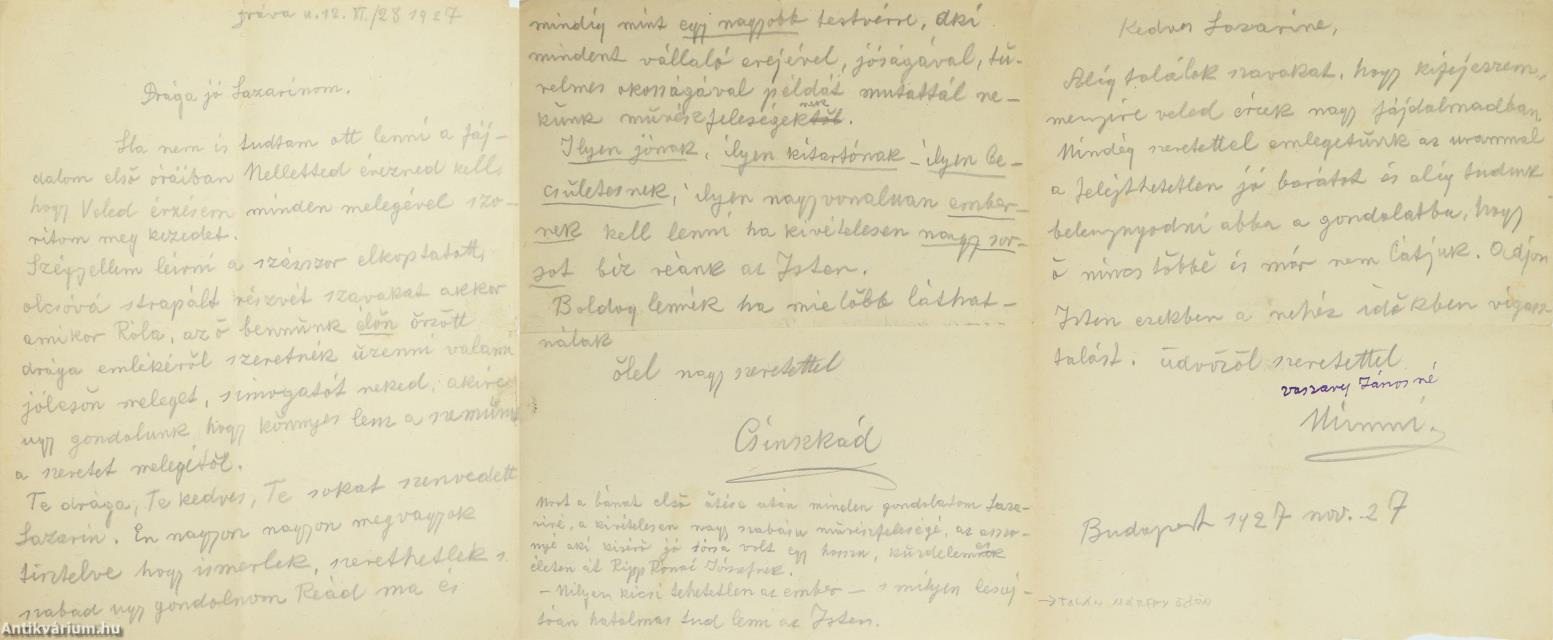 Práva u. 12. VI./28 1927
Drága jó Lazarinom.
Ha nem is tudtam ott lenni a fáj-
dalom első óráiban Nelletted érezned kell,
hogy Veled érzésem minden melegével szo-
ritom meg kezedet.
Szégyellem leirni a százszor elkoptatott,
olcsóvá strapált részvét szavakat akkor
amikor Róla, az ő bennünk élőn őrzött
drága emlékéről szeretnék üzenni valami
jóleső meleget, simogatót neked, akire
ugy gondolunk, hogy könnyes lesz a szemünk
a szeretet melegitől.
Te drága, Te kedves, Te sokat szenvedett
Lazarin. Én nagyon nagyon megvagyok
tisztelve hogy ismerlek, szerethetlek s
szabad ugy gondolnom Reád ma és
mindig mint egy nagyobb testvérre, aki
mindent vállaló erejével, jóságával, tü-
relmes okosságával példát mutattál ne-
künk művészfeleségeknek.
Ilyen jónak, ilyen kitartónak – ilyen be-
csületesnek, ilyen nagyvonaluan ember-
nek kell lenni ha kivételesen nagy sor-
sot biz reánk az Isten.
Boldog lennék ha mielőbb láthat-
nálak
ölel nagy szeretettel
Csinszkád
Most a bánat első ütése után minden gondolatom Laza-
riné, a kivételesen nagy szabásu művészfeleségé, az asszo-
nyé aki kisérő jó társa volt egy hosszu, küzdelmes
életen át Ripp Rónai Józsefnek.
– Milyen kicsi tehetetlen az ember – s milyen lesuj-
tóan hatalmas tud lenni az Isten.
Kedves Lazarine,
Alig találok szavakat, hogy kifejezzem,
mennyire veled érzek nagy fájdalmadban.
Mindég szeretettel emlegetünk az urammal
a felejthetetlen jó barátot és alig tudunk
belenyugodni abba a gondolatba, hogy
ő nincs többé és már nem látjuk. Adjon
Isten ezekben a nehéz időkben vigasz-
talást. Üdvözöl szeretettel
Vaszary Jánosné
Mimmi.
Budapest 1927 nov. 27
→ talán Márffy Ödön
Antikvárium.hu